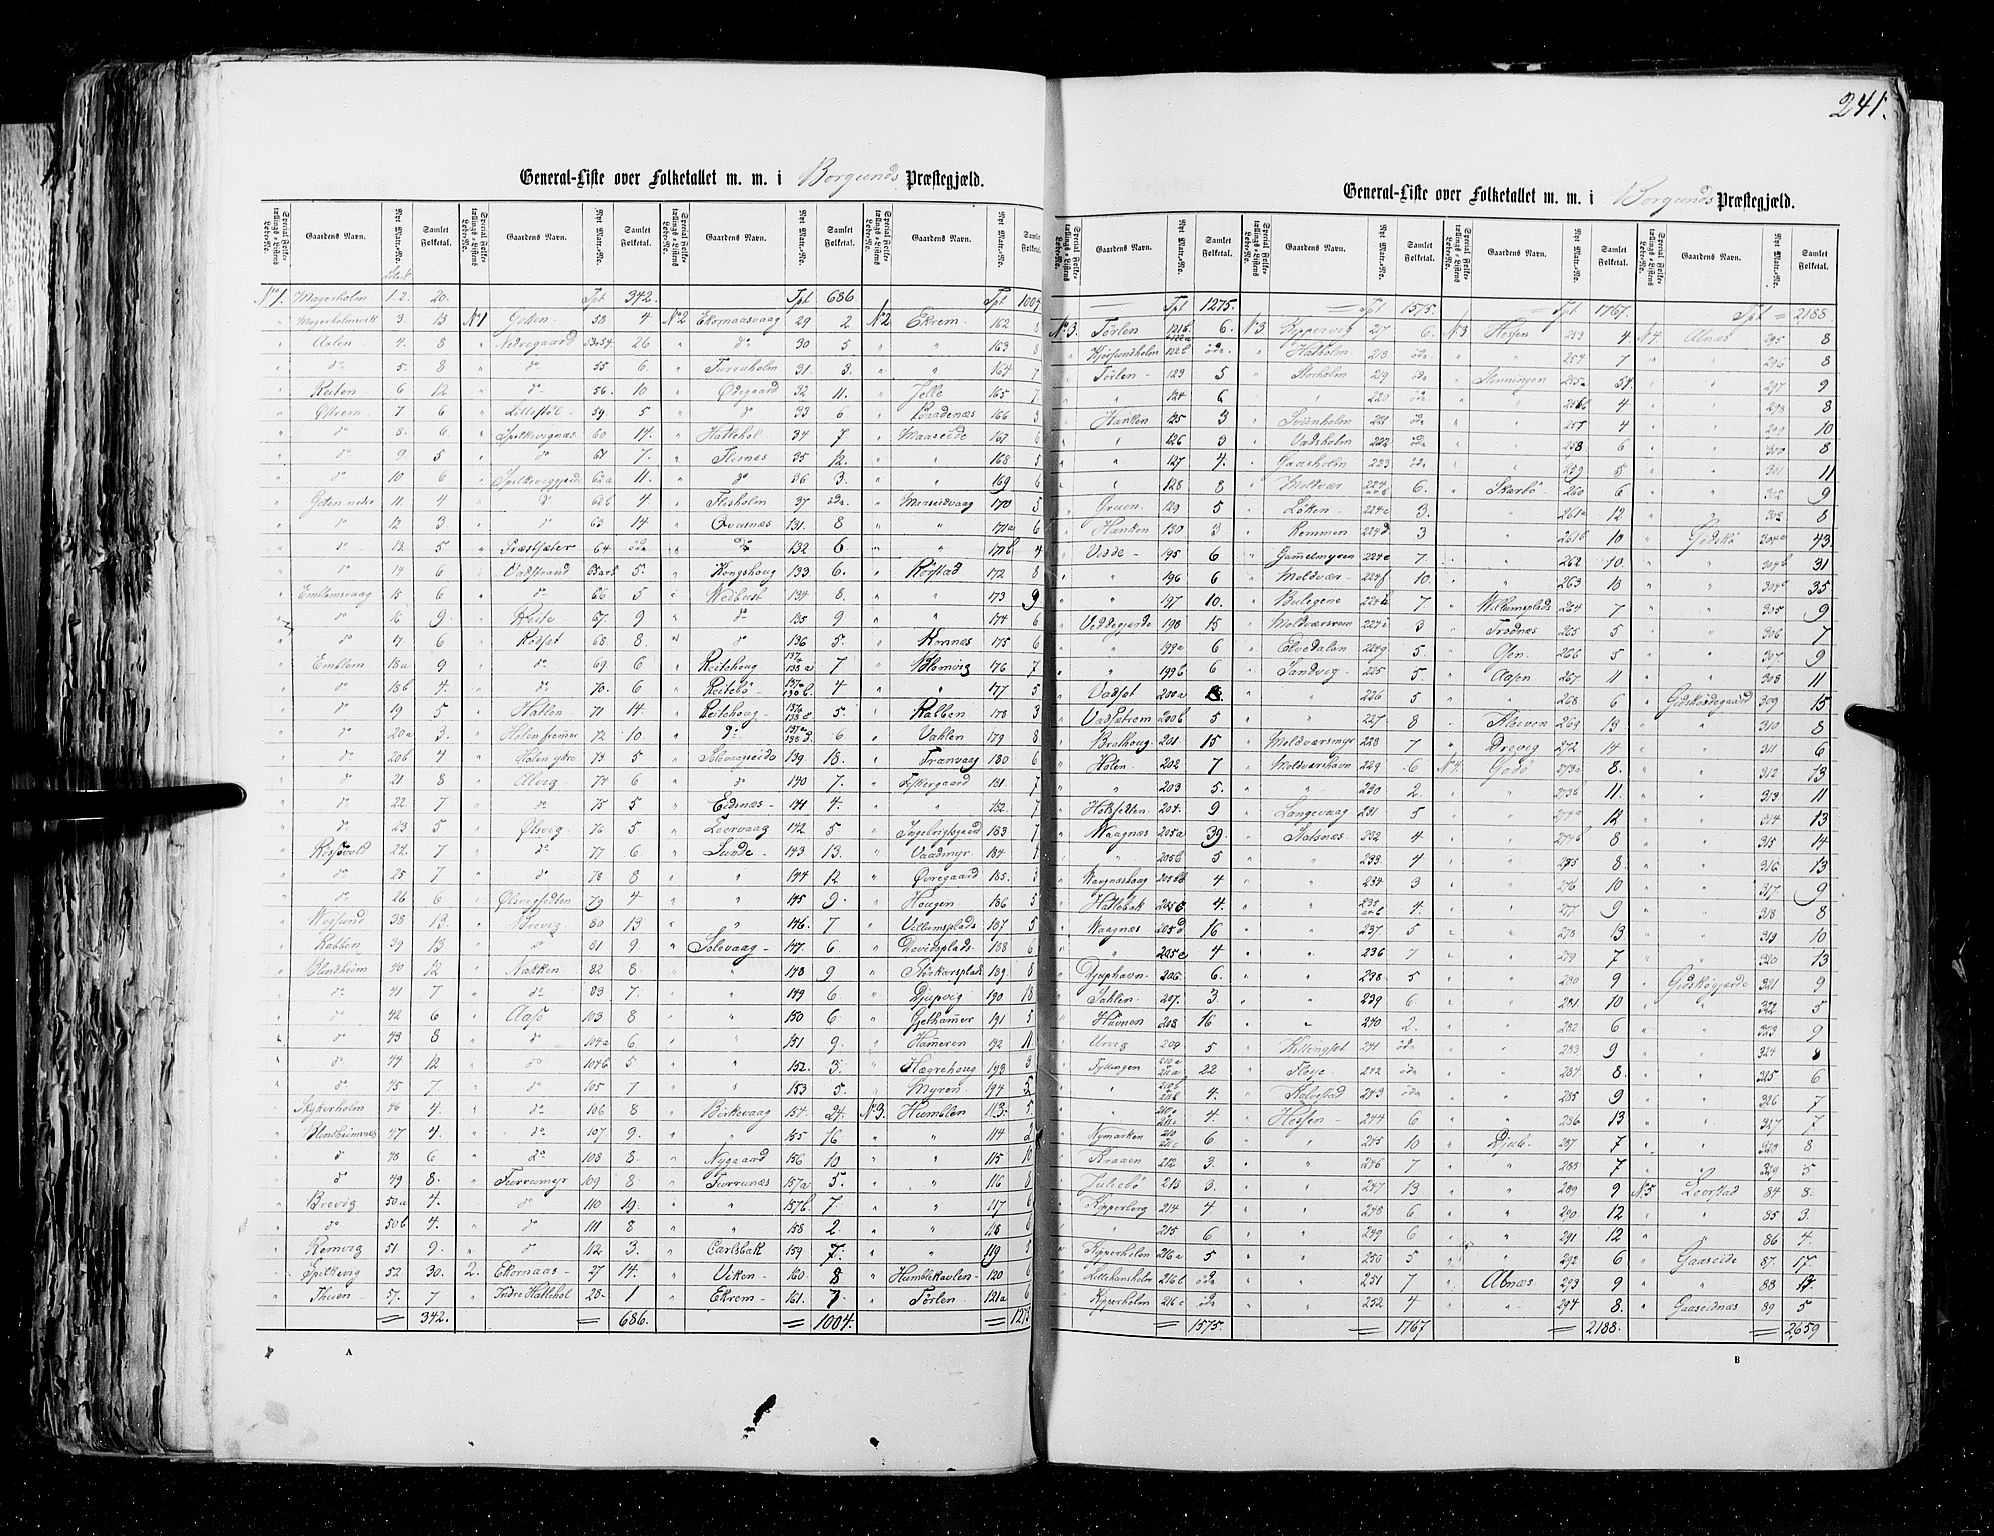 241.
General-Liste over Folketallet m. m. i Borgunds Præstegjæld.
Special Folketællings-Listens Løbe-No. Gaardens Navn. Nyt Matr.-No. Samlet Folketal. Special Folketællings-Listens Løbe-No. Gaardens Navn. Nyt Matr.-No. Samlet Folketal. Special Folketællings-Listens Løbe-No. Gaardens Navn. Nyt Matr.-No. Samlet Folketal. Special Folketællings-Listens Løbe-No. Gaardens Navn. Nyt Matr.-No. Samlet Folketal.
No 1. Magerholm 1.2. 20. Tpt 342. Tpt 686. Tpt
" 3. 13 No 1 58 4 No 2 Ekornaasvaag 29 2 No 2 Ekrem 162 8
" 4. 8 " Nedregaard 53 54 26 " do 30 5 " " 163 8
" do 5. 8 " do 55 6. " Furuholm 31 3. " " 164 7
" Reiten 6 12 " do 56. 10 " Ødegaard 32 11. " Jelle 165 7
" 7 6 " 59 5 " do 33 6 " 166 3
" do 8. 6. " Spilkevignæs 60 14. " Hattehol 34 7 " Maaseide 167 6
" do 9 5 " do 61 7. " Flisnæs 35 12. " " 168 5
" do 10 6 " 62a 11. " do 36 3. " " 169 6
" 11 4 " do 62b 4 " Flisholm 37 öde " Maaseidvaag 170 5
" do 12 3 " do 63 14 " 131. 8 " " 171a 6
" do 13. 5 " 64 öde " do 132 6 " " 171b 4
" do 14 6 " Vadstrand 5. " Kongshoug 133 6. " Rörstad 172 8
" Emblemsvaag 15 6 " do 66 5 " 134 8. " " 173 9
" do 16 9. " Reite 67. 9 " do 135 9 " " 174 6
" do 17 6 " Rödset 68 8 " do 136 5. " 175 6
" Emblem 18a 9 " do 69 6 " Reitehoug 137a 138a 7 " Blomvig 176 7
" do 18b 4. " do 70. 6 " Reitebö 4 " " 177 5
" do 19 5 " Hatlen 71 14 " Reitehoug 5. " Rabben 178 3
" do 20a 3. " 72 10. " do 6 " Vahlen 179 8
" do 20b 4 " 73 5 " Solevaagseide 139 18. " Tranvaag 180 6
" do 21 8 " 74 6 " do 140 7. " 181. 7
" do 22. 7 " do 75 5 " Eidnæs 141 4. " " 182. 7
" do 23 5 " Ølsvig 76 5 " Leervaag 142 5 " Ingebrigtsgaard 183 7
" 24. 7 " do 77 6 " Sunde 143 13. " Vaadmyr 184
" do 25 7 " do 78 8 " " 144 12 " Øvregaard 185.
" do 26 6 " 79 4 " " 145 9. " Hougen 186 5
" Vegsund 38 13. " Brevig 80 13 " " 146. 7 " Villumsplads 187 5
" Rabben 39 13 " do 81 9 " Solevaag 147. 6 " Davidsplads 188 6
" Blindheim 40 12 " Nakken 82 8. " " 148 9 " 189. 8
" do 41 7 " do 83 7. " " 149 6. " Djupvig 190 18
" do 42 6 " Aase 103 8 " " 150 6 " Gjethamer 191 5
" do 43 8 " 104a 6 " " 151 9. " Hameren 192 11
" do 44 12 " do 104b 5 " " 152. 3. " Hægrehoug 193 3
" do 45 7 " do 105 7 " " 153 5. " Myren 194 5
" 46 4. " do 106 8 " Börkevaag 154. 24. No 3. Humblen 113. 5
" Blindheimsnæs 47 4. " do 107 9. " " 155 16 " " 114 2
" do 48 6 " do 108 8. " Nygaard 156 10 " " 115 10
" do 49 8. " Furrumyr 109 8 " Furrunæs 157a 5. " " 116 8
" Brevig 50a 4. " do 110 19. " " 157b. 7 " " 117 6
" do 50b 4. " do 111 8 " " 158 2 " " 118
" Remvig 51 9. " do 112 3. " Carlsbak 159 7. " " 119
" Spilkevig 52 30. 2. Ekornaas 27 14. " Viken 160 8 " Humblekavlen 120 6
" 57. 7 " Indre Hattehol 28 1 " Ekrem 161. 7 " Tørlen 121a 6
= 342. = 686. = 1004. =
A
General-Liste over Folketallet m. m. i Borgunds Præstegjæld.
Special Folketællings-Listens Løbe-No. Gaardens Navn. Nyt Matr.-No. Samlet Folketal. Special Folketællings-Listens Løbe-No. Gaardens Navn. Nyt Matr.-No. Samlet Folketal. Special Folketællings-Listens Løbe-No. Gaardens Navn. Nyt Matr.-No. Samlet Folketal. Special Folketællings-Listens Løbe-No. Gaardens Navn. Nyt Matr.-No. Samlet Folketal.
Tpt 1275. Tpt 1575. Tpt 1767. Tpt = 2188.
No 3. Tørlen 121b 6. No 3 Kippervig 217 6. No 3 Hessen 253 4 No 4. Alnæs 295 8
" Kjørsundholm öde. " Hatholm 218 öde " " 254 7 " " 296 8
" Tørlen 123 5 " Storholm 219 öde " Slinningen 255a 54. " " 297 9
" " 124 6 " " 220 öde " " 256b 4 " " 298 8
" Hanken 125 3 " 221 öde " " 257 4 " " 299 10
" " 126 3 " Vadsholm 222 öde " " 258 6 " " 300 8
" " 127 4. " Gaasholm 223 öde " " 259 5 " " 301 11
" " 128 8 " Moldvær 6. " Skarbö 260 6 " " 302 9
" Gruen 129 5 " Løken 224c 3. " " 261a 12 " " 303 8
" Hanken 130 3 " Remmen 224d 3 " " 261b 10 " Gidskö 304a 43.
" Vedde 195 6 " Gammelmyren 224e 7 " " 262 10. " " 304b 31
" " 196 6 " Moldvær 224f 10. " " 263 13 " " 304c 35
" " 197 10. " Bulegene 224h 7 " Willumsplads 264 7 " " 305 9
" Veddegjerde 198 15 " Moldværsrem 224i 3 " 265 5 " " 306 7
" " 199a 6 " Elvedalen 224g 5. " 266 5 " " 307. 9
" " 199b 6 " Sandvig 225 5 " Aasen 267 11 " " 308 11
" Vadset 200a 8. " " 226 5 " " 268 6 " Gidskødegaard 309 15
" Vadsetrem 200b 5 " " 227 8 " Kleiven 269 13 " " 310 8
" Brathoug 201 15 " Moldværsmyr 228 7 " Drevig 272 14 " " 311 6
" Holen 202 7 " Moldværshavn 229 6 No 4. Godö 273a 8. " " 312 13
" " 203 5. " " 230 2. " " 273b 11. " " 313 11
" 204. 9 " Langevaag 231 5 " " 274a 12 " " 314 13
" Vaagnæs 205a 39 " Statsnæs 232 4 " " 274b 8 " " 315 14
" " 205b 5 " " 233 4 " " 275 8. " " 316 13
" 4 " " 234 3 " " 276 10 " " 317 9
" Hattebak 205c 4. " " 4. " " 277 9 " " 318 8
" Vaagnæs 205d 16 " " 237 5 " " 278 13 " " 319 10
" " 205e 4 " " 236 7 " " 279 7 " " 320 13
" Djuphavn 206. 6. " " 238. 5 " " 280 9 " Gidskögjærde 321 9
" Sahlen 207. 3 " " 239 6. " " 281 10 " " 322 5
" Havnen 208 16 " " 240 2. " " 282 6 " " 323 9
" Urvig 209 5 " Killingset 241 öde " " 283 9 " " 324 8
" Tyllingen 210a 211a 22 " Fløye 242 öde " " 284 8. " " 325 6
" " 4. " Kalvstad 243 öde " " 285 9 " " 326 7
" " 4 " Hessen 244 6 " " 286 13 " " 327 7
" Nymarken 6 " " 245 10 " Djub 287 7 " " 328 8
" Kraaen 212 3. " " 246 7 " " 288 7 " " 329 5
" Juliebö 213 3. " " 247 13 " " 289 9 No 5 Leerstad 84 8.
" Kipperberg 214 4 " " 248 6 " " 290 12 " " 85 3.
" " 215 6 " " 249 6 " " 291 12 " " 86 4.
" Kipperholm 216a 5 " " 250 5 " " 292 6 " Gaaseide 87. 17.
" Lillehansholm 216b öde " " 251 7 " Alnæs 293 9 " " 88 17
" Kipperholm 216c öde " " 252 4 " " 294 8. " Gaaseidnæs 89 5
= 1575. = 1767 = 2188. = 2659
B